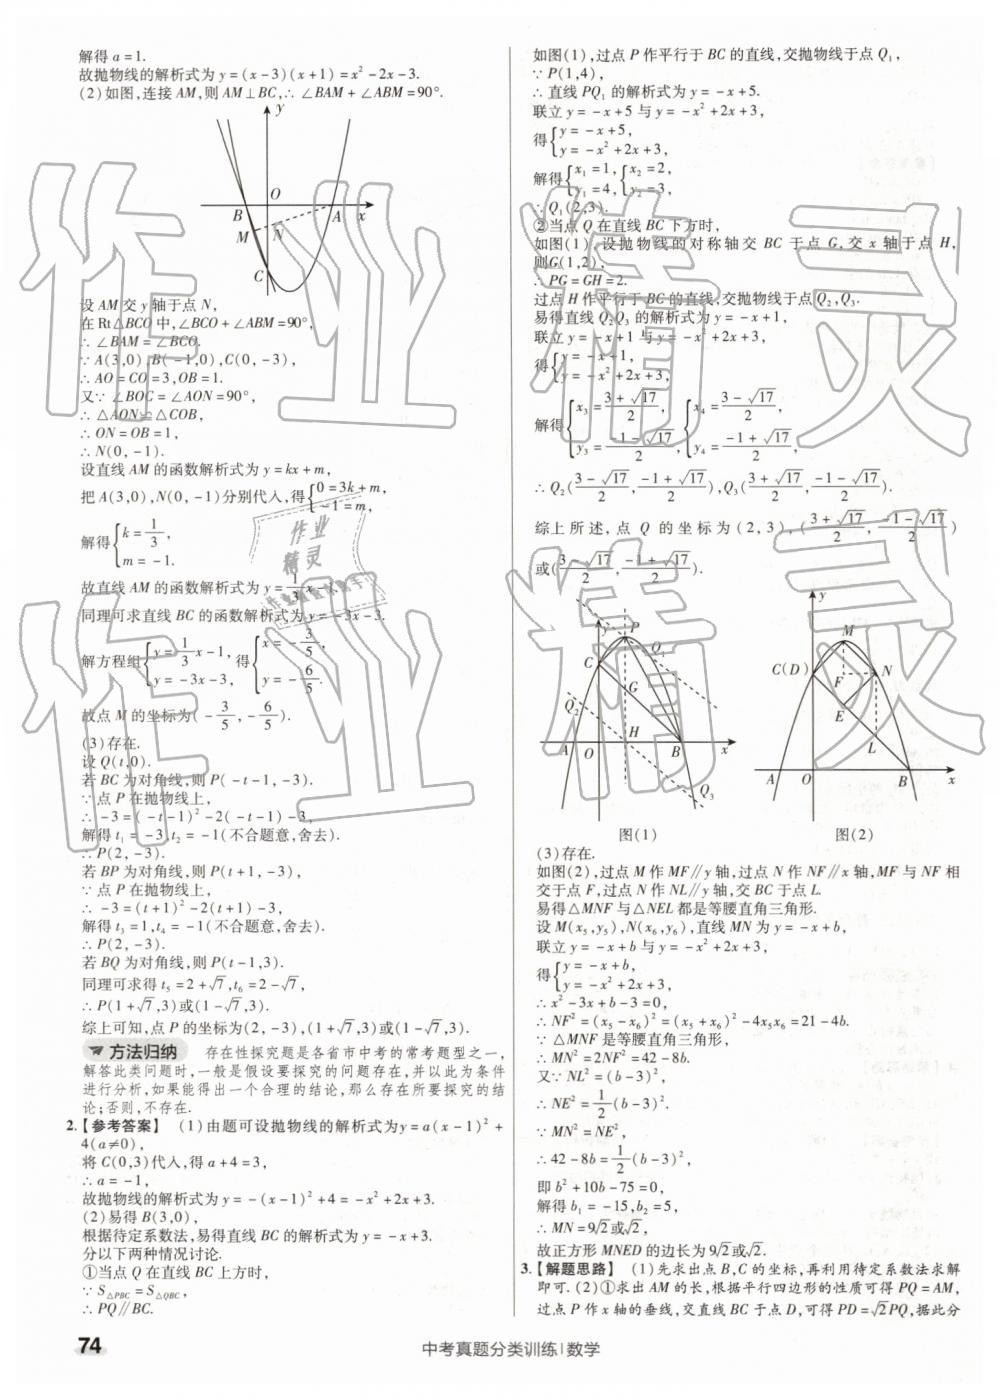 解得 a=1.
故抛物线的解析式为 y=(x-3)(x+1)=x²-2x-3.
(2)如图,连接 AM,则 AM⊥BC,∴∠BAM+∠ABM=90°.
y
O
B
A
x
M
N
C
设 AM 交 y 轴于点 N,
在 Rt△BCO 中,∠BCO+∠ABM=90°,
∴∠BAM=∠BCO.
∵A(3,0),B(-1,0),C(0,-3),
∴AO=CO=3,OB=1.
又∵∠BOC=∠AON=90°,
∴△AON≌△COB,
∴ON=OB=1,
∴N(0,-1).
设直线 AM 的函数解析式为 y=kx+m,
把 A(3,0),N(0,-1)分别代入,得{0=3k+m, -1=m,
解得{k=1/3, m=-1.
故直线 AM 的函数解析式为 y=1/3x-1.
同理可求直线 BC 的函数解析式为 y=-3x-3.
解方程组{y=1/3x-1, y=-3x-3, 得{x=-3/5, y=-6/5.
故点 M 的坐标为(-3/5,-6/5).
(3)存在.
设 Q(t,0).
若 BC 为对角线,则 P(-t-1,-3).
∵点 P 在抛物线上,
∴-3=(-t-1)²-2(-t-1)-3,
解得 t₁=-3,t₂=-1(不合题意,舍去).
∴P(2,-3).
若 BP 为对角线,则 P(t+1,-3),
∵点 P 在抛物线上,
∴-3=(t+1)²-2(t+1)-3,
解得 t₃=1,t₄=-1(不合题意,舍去).
∴P(2,-3).
若 BQ 为对角线,则 P(t-1,3).
同理可求得 t₅=2+√7,t₆=2-√7,
∴P(1+√7,3)或(1-√7,3).
综上可知,点 P 的坐标为(2,-3),(1+√7,3)或(1-√7,3).
方法归纳 存在性探究题是各省市中考的常考题型之一,
解答此类问题时,一般是假设要探究的问题存在,并以此为条件
进行分析,如果能得出一个合理的结论,那么存在所要探究的结
论;否则,不存在.
2.【参考答案】 (1)由题可设抛物线的解析式为y=a(x-1)²+
4(a≠0),
将 C(0,3)代入,得 a+4=3,
∴a=-1,
故抛物线的解析式为 y=-(x-1)²+4=-x²+2x+3.
(2)易得 B(3,0),
根据待定系数法,易得直线 BC 的解析式为 y=-x+3.
分以下两种情况讨论.
①当点 Q 在直线 BC 上方时,
∵S△PBC=S△QBC,
∴PQ∥BC.
如图(1),过点 P 作平行于 BC 的直线,交抛物线于点 Q₁,
∵P(1,4),
∴直线 PQ₁ 的解析式为 y=-x+5.
联立 y=-x+5 与 y=-x²+2x+3,
得{y=-x+5, y=-x²+2x+3,
解得{x₁=1, y₁=4, {x₂=2, y₂=3,
∴Q₁(2,3).
②当点 Q 在直线 BC 下方时,
如图(1),设抛物线的对称轴交 BC 于点 G,交 x 轴于点 H,
则G(1,2),
∴PG=GH=2.
过点 H 作平行于 BC 的直线,交抛物线于点 Q₂,Q₃.
易得直线 Q₂Q₃ 的解析式为 y=-x+1,
联立 y=-x+1 与 y=-x²+2x+3,
得{y=-x+1, y=-x²+2x+3,
解得{x₃=(3+√17)/2, y₃=(-1-√17)/2, {x₄=(3-√17)/2, y₄=(-1+√17)/2,
∴Q₂((3-√17)/2,(-1+√17)/2),Q₃((3+√17)/2,(-1-√17)/2).
综上所述,点 Q 的坐标为(2,3),((3+√17)/2,(-1-√17)/2)
或((3-√17)/2,(-1+√17)/2).
y
P
Q₁
C
G
Q₂
H
A
O
B
x
Q₃
图(1)
y
M
C(D)
F
N
E
L
A
O
B
x
图(2)
(3)存在.
如图(2),过点 M 作 MF∥y 轴,过点 N 作 NF∥x 轴,MF 与 NF 相
交于点 F,过点 N 作 NL∥y 轴,交 BC 于点 L.
易得△MNF 与△NEL 都是等腰直角三角形.
设 M(x₅,y₅),N(x₆,y₆),直线 MN 为 y=-x+b,
联立 y=-x+b 与 y=-x²+2x+3,
得{y=-x+b, y=-x²+2x+3,
∴x²-3x+b-3=0,
∴NF²=(x₅-x₆)²=(x₅+x₆)²-4x₅x₆=21-4b.
∵△MNF 是等腰直角三角形,
∴MN²=2NF²=42-8b.
又∵NL²=(b-3)²,
∴NE²=1/2(b-3)².
∵MN²=NE²,
∴42-8b=1/2(b-3)²,
即 b²+10b-75=0,
解得 b₁=-15,b₂=5,
∴MN=9√2或√2,
故正方形 MNED 的边长为 9√2或√2.
3.【解题思路】 (1)先求出点 B,C 的坐标,再利用待定系数法求解
即可.(2)①求出 AM 的长,根据平行四边形的性质可得 PQ=AM,
过点 P 作 x 轴的垂线,交直线 BC 于点 D,可得 PD=√2PQ,据此分
74
中考真题分类训练|数学
作业精灵
作业精灵
作业
精灵